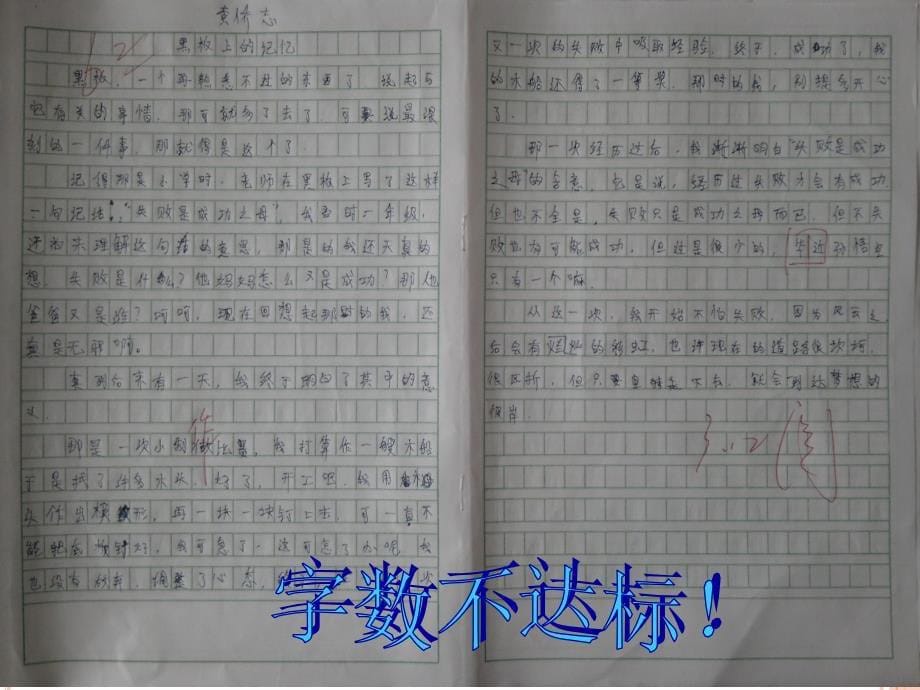 黑板上的记忆
黑板，一个再熟悉不过的东西了，说起与
它有关的事情，那可就多了去了，可要说最深
刻的一件事，那就得是这个了。
记得那是小学时，老师在黑板上写了这样
一句记语："失败是成功之母"，我当时一年级，
还不理解这句话的意思，那是的我还天真的
想，失败是什么？他妈妈怎么又是成功？那他
爸爸又是谁？呵呵，现在回想起那时的我，还
真是无聊啊。
直到后来有一天，我终于明白了其中的意
义。
那是一次小制作比赛，我打算作一艘木船
于是找了许多木头，好了，开工吧，我用木
头作出模形，再一块一块钉上去，可一直不
能把它钉好，我可急了，这可怎么办呢，我
也没有放弃，调整了心态，
次
又一次的失败中吸取经验，终于，成功了，我
的木船还得了一等奖，那时的我，别提多开心
了。
那一次经历过后，我渐渐明白"失败是成功
之母"的含意，也是说，经历过失败才会有成功
但也不全是，失败只是成功之母而已，但不失
败也有可能成功，但这是很少的，毕近孙悟空
只有一个嘛。
从这一次，我开始不怕失败，因为风云之
后会有灿灿的彩虹，也许现在的道路很坎坷，
很区折，但只要坚持走下去，就会到达梦想的
彼岸。
字数不达标！